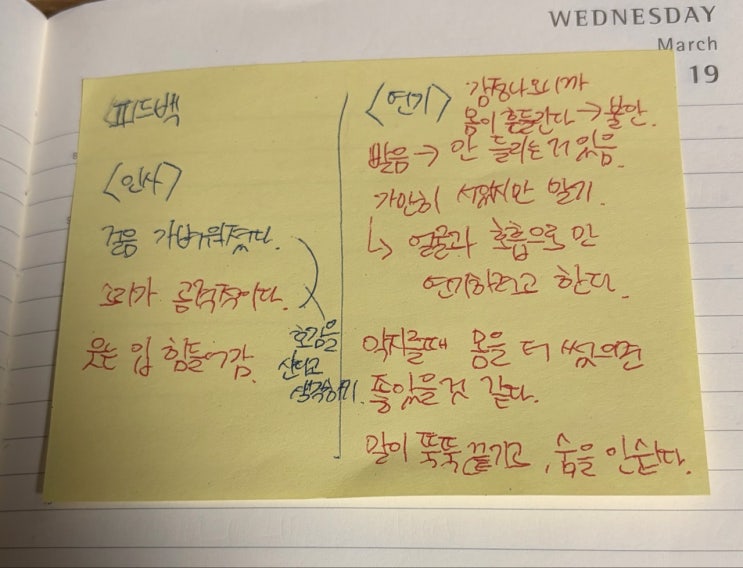 WEDNESDAY
March
19
<피드백
<인사>
걸음 가벼워졌다.
소리가 공격적이다.
웃는 입 힘들어감.
호감을
산다고
생각하기.
<연기> 감정나오니까
몸이 흔들린다 → 불안.
발음 → 안 들리는거 있음.
가만히 서있지만 말기.
↳ 얼굴과 호흡으로만
연기하려고 한다.
악지를때 몸을 더 썼으면
좋았을것 같다.
말이 뚝뚝 끊기고, 숨을 안쉰다.